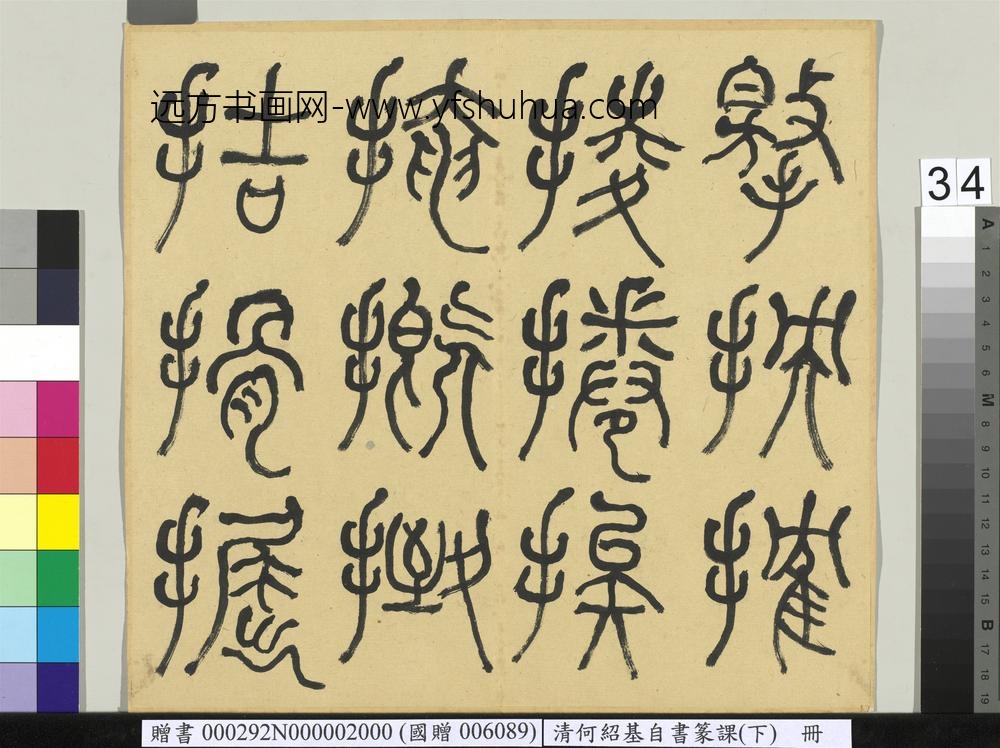 34
抰
搉
掕
捲
挨
摡
拮
搰
远方书画网-www.yfshuhua.com
贈書 000292N000002000 (國贈 006089) 清何紹基自書篆課(下) 冊
A 1 2 3 4 5 6 M 8 9 10 11 12 13 14 15 B 17 18 19